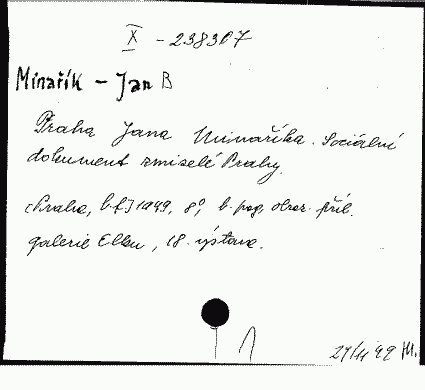 X - 238307
Minařík - Jan B
Praha Jana Minaříka. Sociální
dokument zmizelé Prahy.
[Praha, b.t.] 1949, 8°, b. pag, obraz. příl.
galerie Elku, 18. výstava.
1